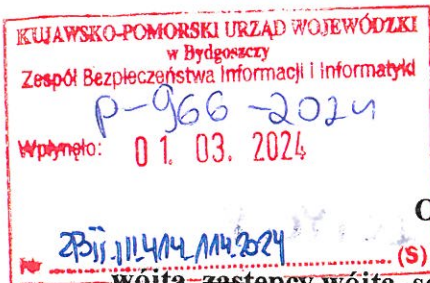 KUJAWSKO-POMORSKI URZĄD WOJEWÓDZKI
w Bydgoszczy
Zespół Bezpieczeństwa Informacji i Informatyki
P-966-2024
Wpłynęło: 01. 03. 2024
O
Nr ZBiI.III.414.114.2024 (S)
wójta, zastępcy wójta, se